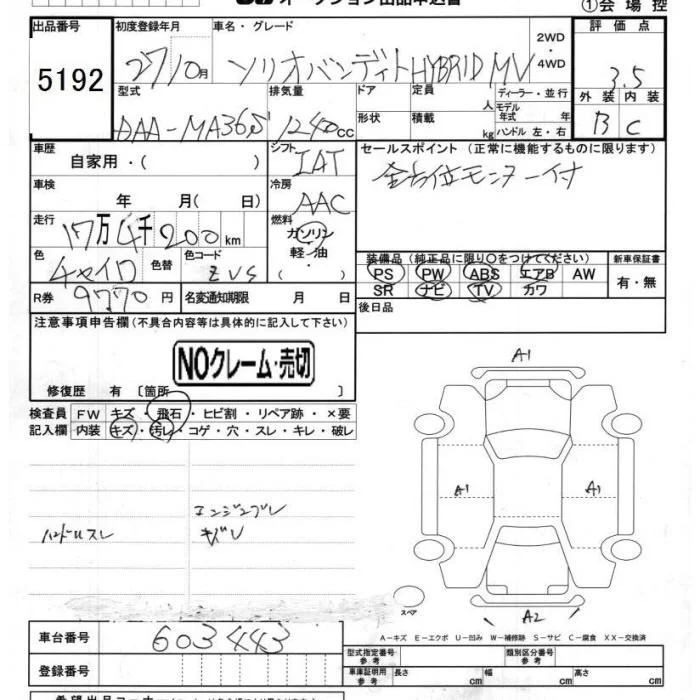 オークション出品申込書
①会場控
出品番号 5192
初度登録年月 27/10月
車名・グレード ソリオバンディットHYBRID MV
2WD・4WD
評価点 3.5
外装 B 内装 C
型式 DAA-MA36S
排気量 1240cc
ドア
形状
定員 人
積載 kg
ディーラー・並行
モデル年式 年
ハンドル 左・右
車歴 自家用・( )
シフト IAT
セールスポイント (正常に機能するものに限ります)
全方位モニター付
車検 年 月( 日)
冷房 AAC
走行 17万4千200km
燃料 ガソリン・軽油・( )
色 チャイロ 色替
色コード ZVS
装備品 (純正品に限り○をつけてください)
PS PW ABS エアB AW
SR ナビ TV カワ
新車保証書
有・無
R券 9770円
名変通知期限 月 日
後日品
注意事項申告欄(不具合内容等は具体的に記入して下さい)
NOクレーム・売切
修復歴 有〔箇所 〕
検査員記入欄
FW キズ・飛石・ヒビ割・リペア跡・×要
内装 キズ・汚レ・コゲ・穴・スレ・キレ・破レ
エンジンブレ
ハンドルスレ
キズレ
A1
A1
A1
スペア
A2
A-キズ E-エクボ U-凹み W-補修跡 S-サビ C-腐食 XX-交換済
車台番号 603443
登録番号
型式指定番号参考
類別区分番号参考
車庫証明用参考 長さ cm 幅 cm 高さ cm